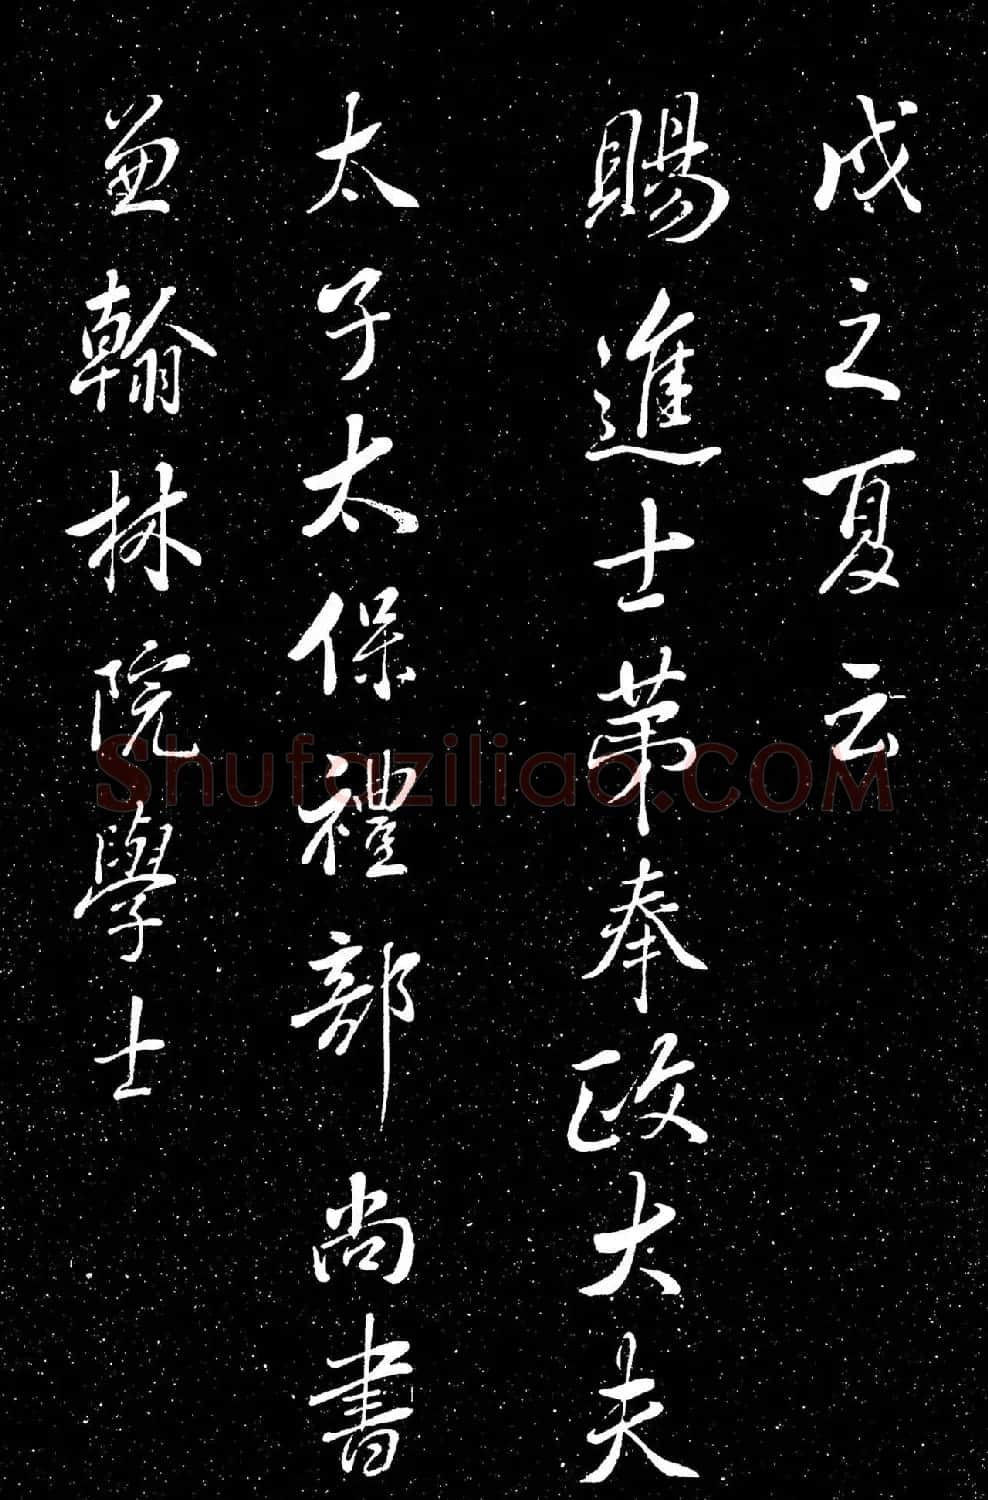 戌之夏云
賜進士苐奉政大夫
太子太保禮部尚書
兼翰林院學士
Shufaziliao.COM